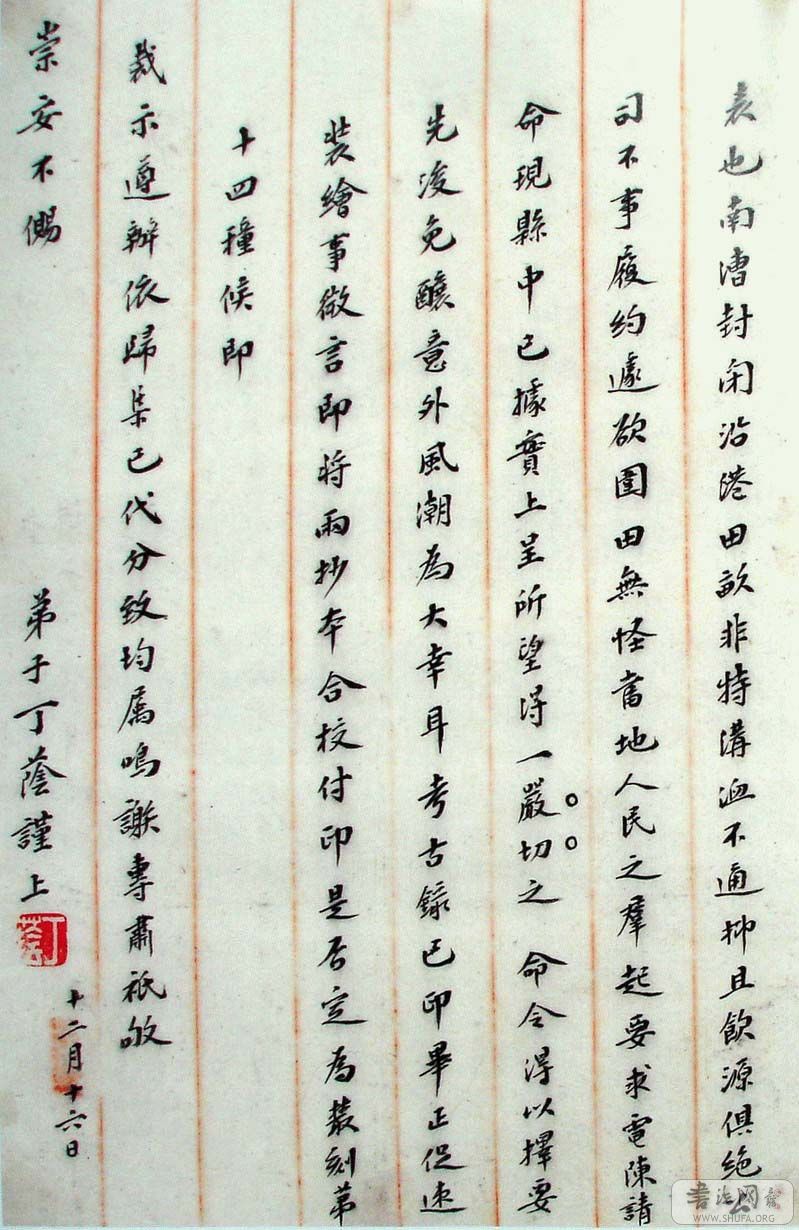 表也南漕封閉沿港田畝非特溝洫不通抑且飲源俱絕公
司不事履約遽欲圍田無怪當地人民之羣起要求電陳請
命現縣中已據實上呈所望得一嚴切之 命令得以擇要
先浚免釀意外風潮為大幸耳考古錄已印畢正促速
裝繪事微言即將兩抄本合校付印是否定為叢刻第
十四種候即
裁示遵辦依歸集已代分致均属鳴謝專肅祇敂
崇安不僃
弟子丁蔭謹上
丁蔭
十二月十六日
書法國畫
WWW.SHUFA.ORG